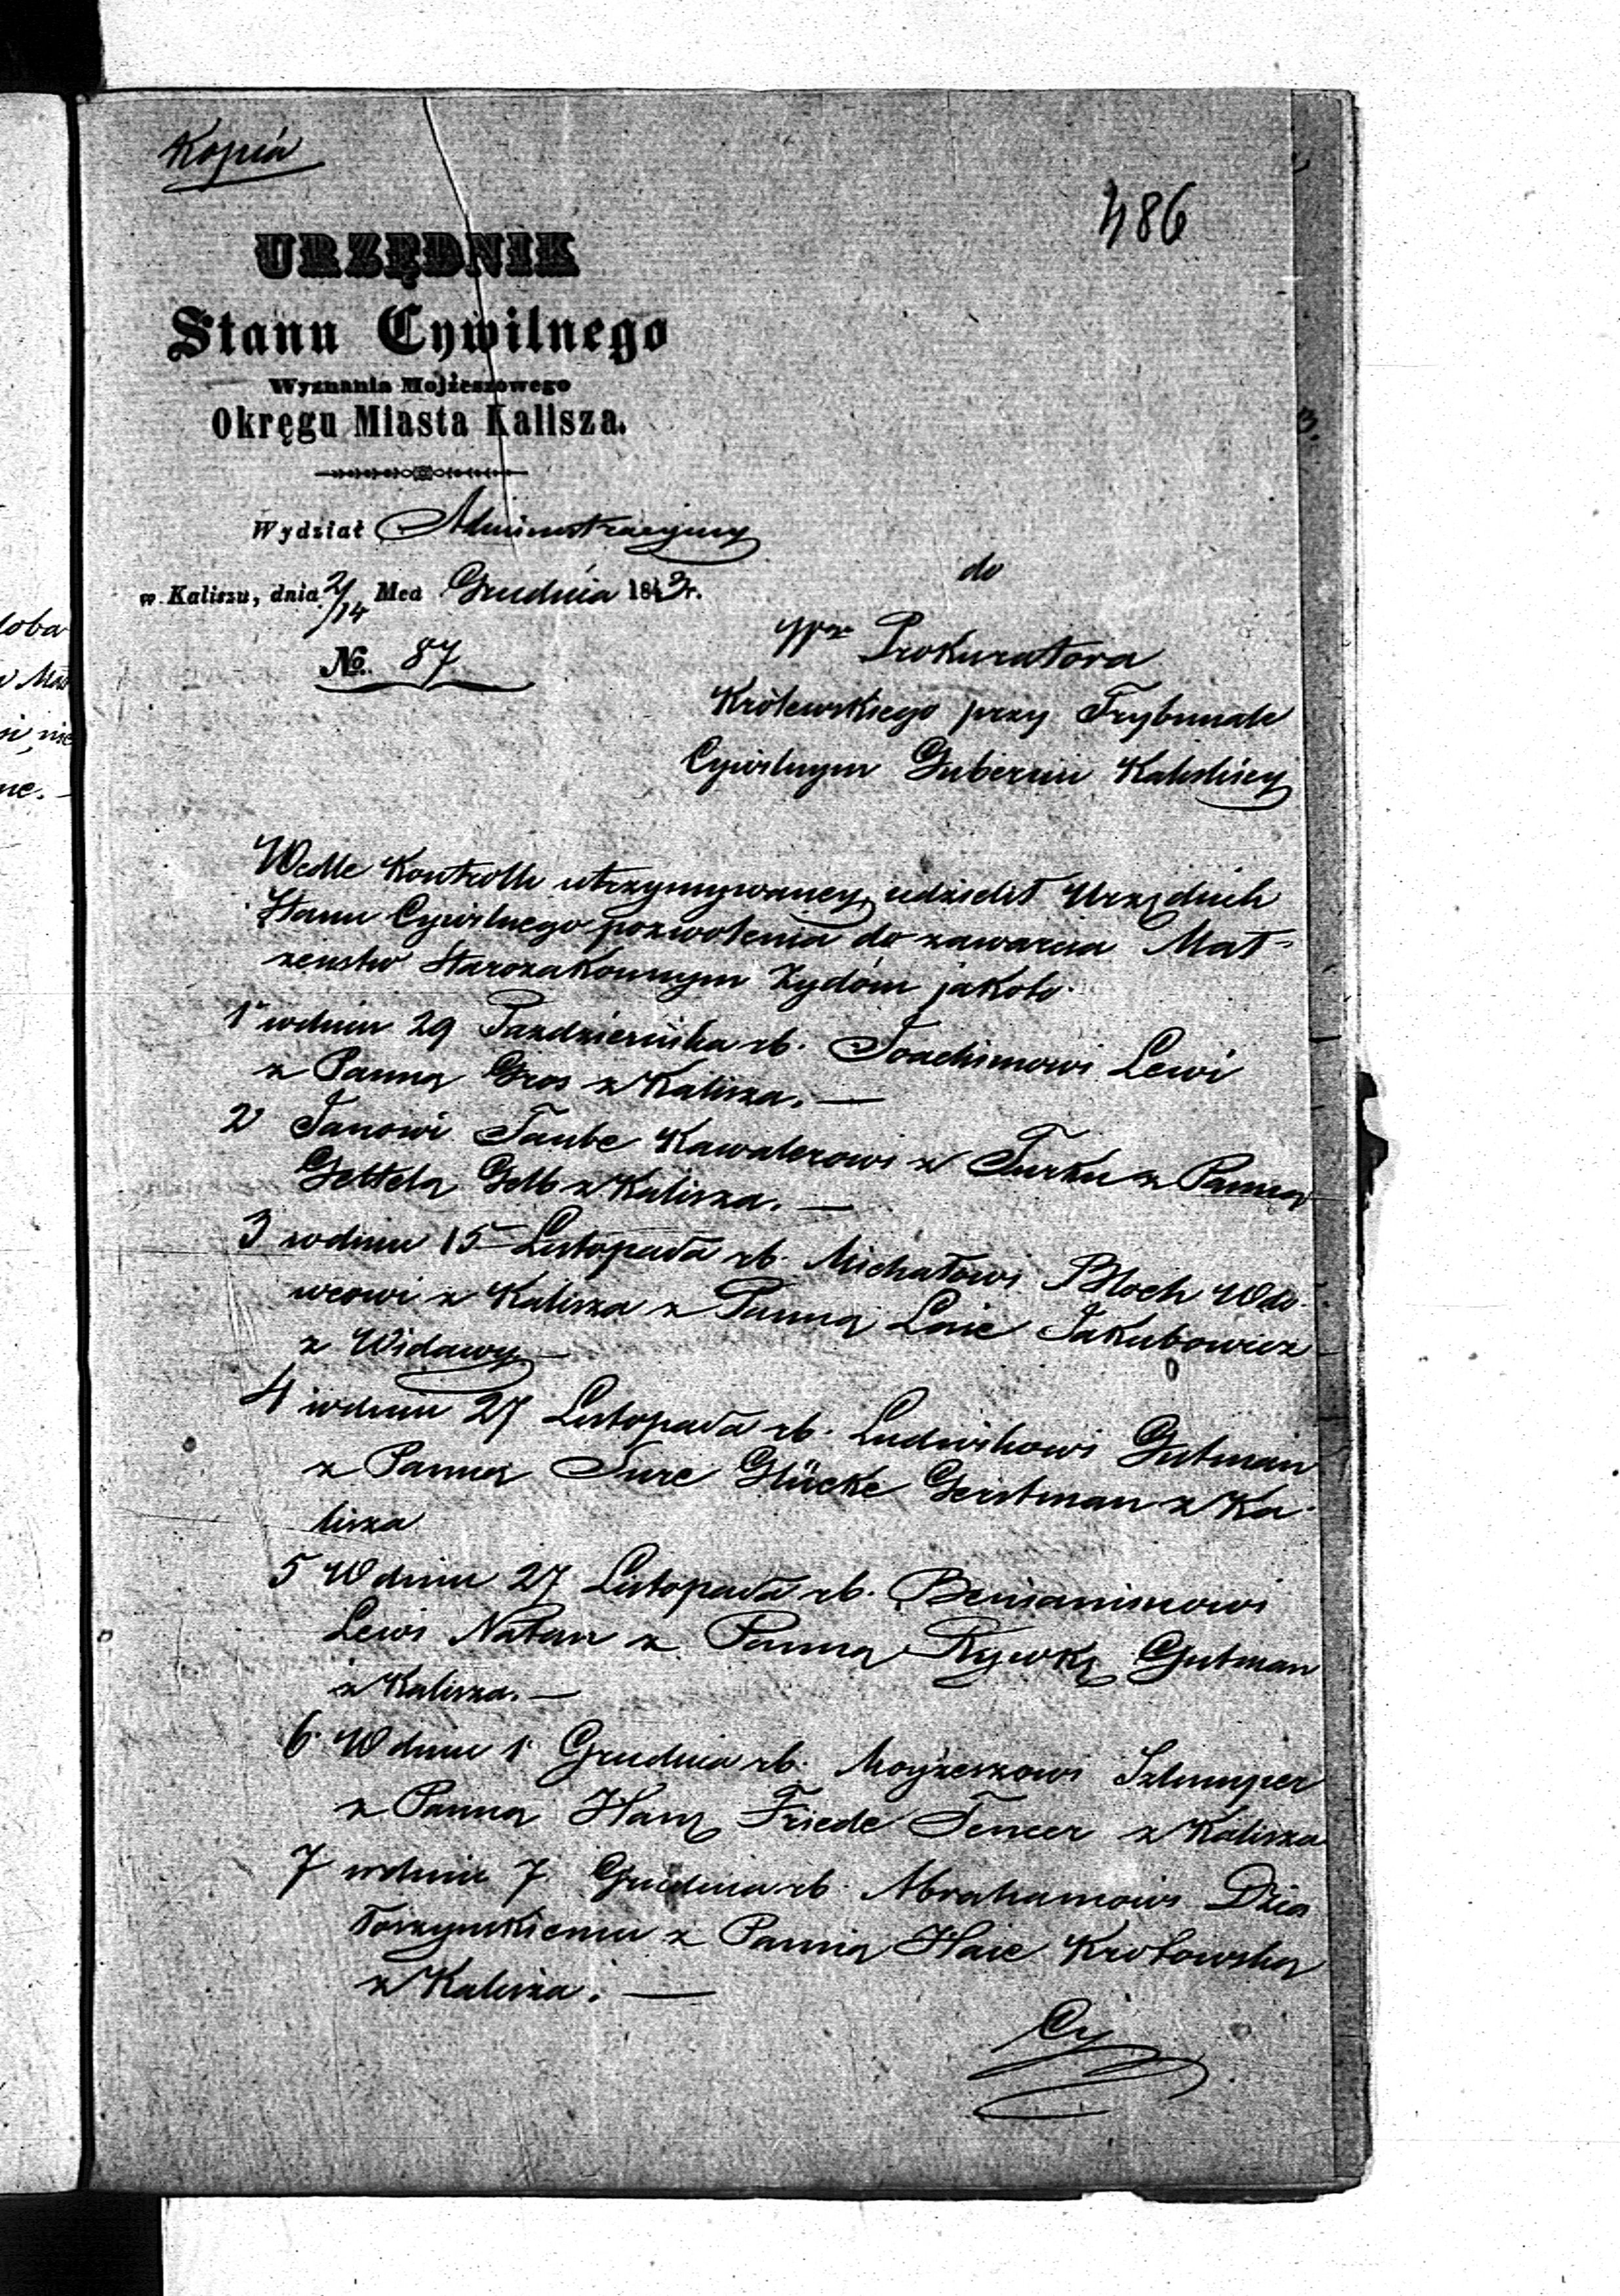 Kopia
486
URZĘDNIK
Stanu Cywilnego
Wyznania Mojżeszowego
Okręgu Miasta Kalisza.
Wydział Administracyjny
w Kaliszu, dnia 2/14 Mca Grudnia 1843 r.
No. 87
do
Prokuratora
Królewskiego przy Trybunale
Cywilnym Gubernii Kaliskiey
Wedle Kontrolli utrzymywaney, udzielił Urzędnik
Stanu Cywilnego pozwolenia do zawarcia Mał-
zenstw Starozakonnym Zydom jakoto
1 wdniu 29 Pazdziernika rb. Joachimowi Lewi
z Panną Gros z Kalisza. —
2 Janowi Taube Kawalerowi z Turku z Panną
Gettelą Gelb z Kalisza. —
3 wdniu 15 Listopada rb. Michałowi Bloch Wdo-
wcowi z Kalisza z Panną Laie Jakubowicz
z Widawy —
4 wdniu 27 Listopada rb. Ludwikowi Gutman
z Panną Sure Glücke Gerstman z Ka-
lisza
5 Wdniu 27 Listopada rb. Beniaminowi
Lewi Natan z Panną Rywką Gutman
z Kalisza. —
6. Wdniu 1 Grudnia rb. Moyżeszowi Szlumper
z Panną Haną Friede Tencer z Kalisza
7 wdniu 7 Grudnia rb. Abrahamowi Dzia
łoszynskiemu z Panną Haie Krotowską
z Kalisza. —
loba
ne.